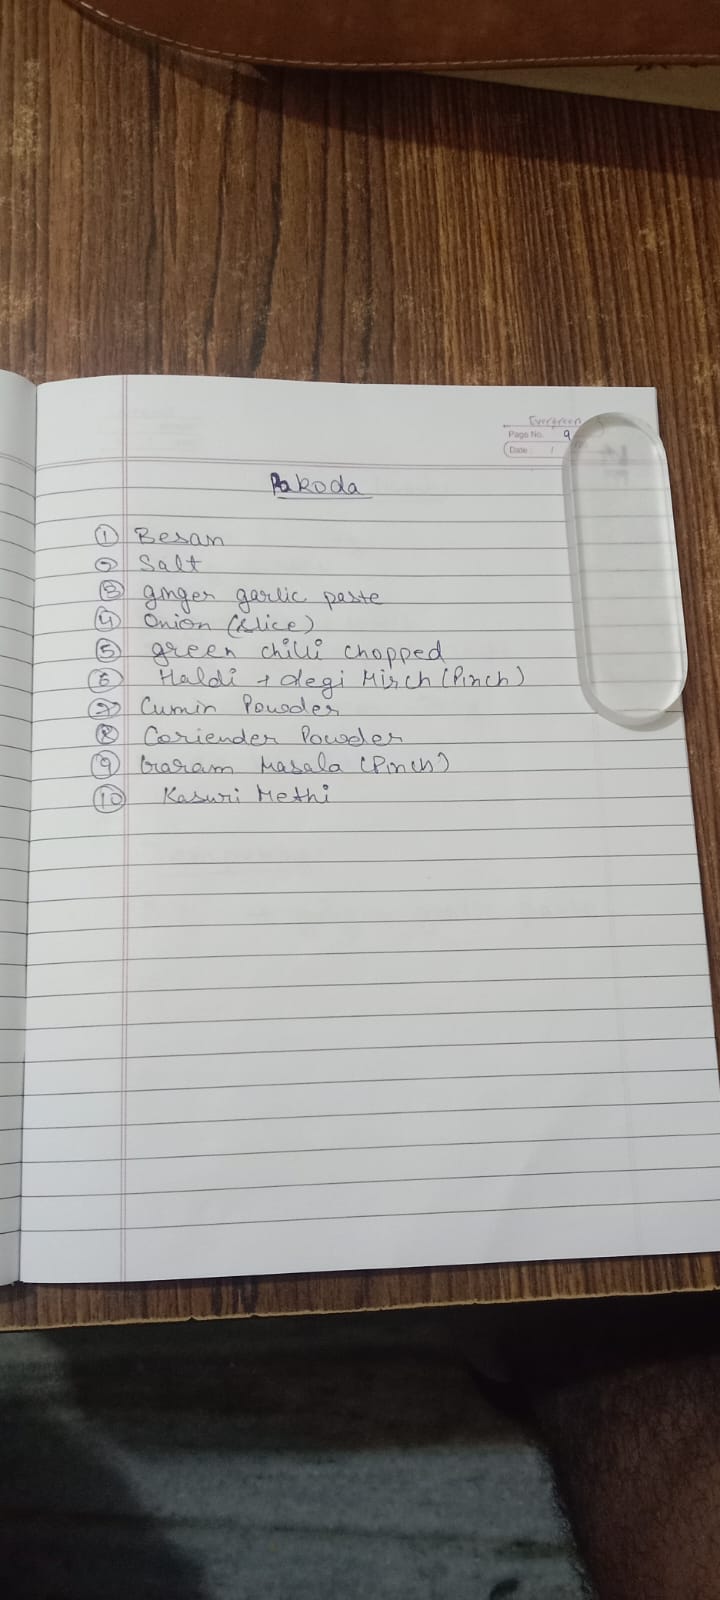 Evergreen
Page No. 9
Date / 
Pakoda
① Besan
② Salt
③ ginger garlic paste
④ Onion (slice)
⑤ green chilli chopped
⑥ Haldi + degi Mirch (Pinch)
⑦ Cumin Powder
⑧ Coriender Powder
⑨ Garam Masala (Pinch)
⑩ Kasuri Methi